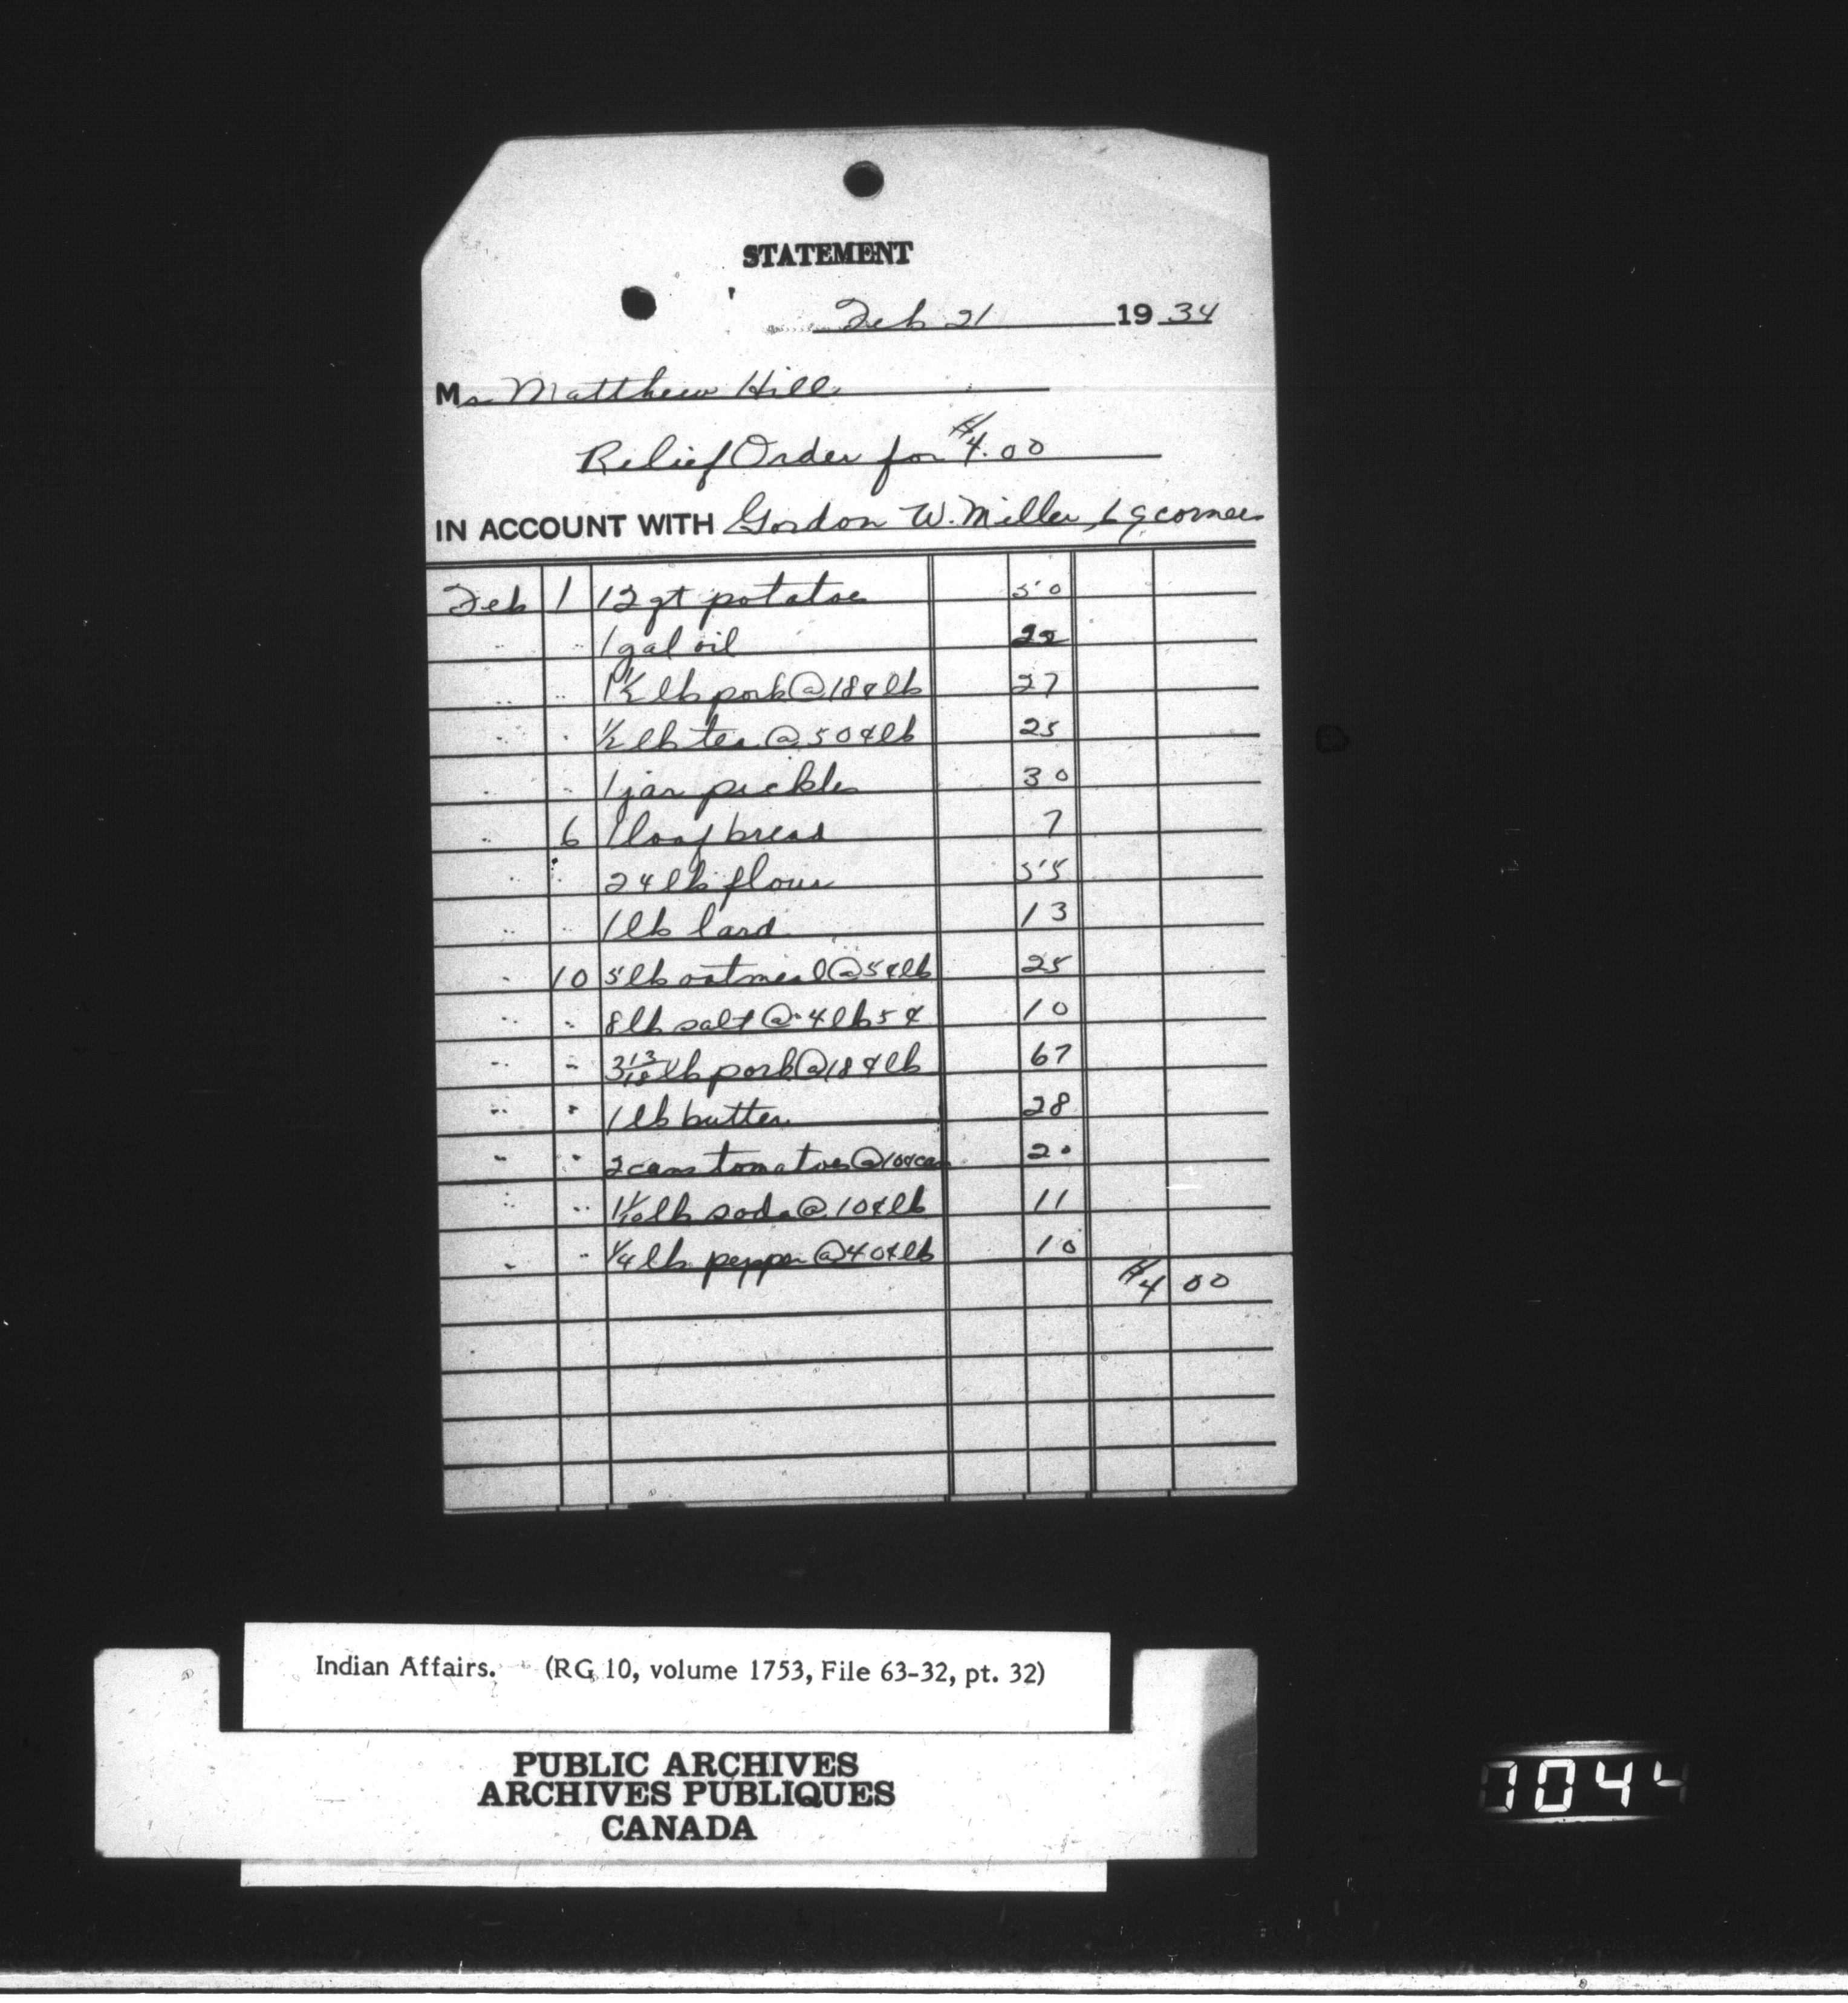 STATEMENT
Feb 21 19 34
Mr Matthew Hill
Relief Order for $4.00
IN ACCOUNT WITH Gordon W. Miller, 69 corners
Feb 1 12 qt potatoes 50
" " 1 gal oil 22
" " 1 1/2 lb pork @ 18¢ lb 27
" " 1/2 lb tea @ 50¢ lb 25
" " 1 jar pickles 30
" 6 1 loaf bread 7
" " 24 lb flour 55
" " 1 lb lard 13
" 10 5 lb oatmeal @ 5¢ lb 25
" " 8 lb salt @ 4 lb 5¢ 10
" " 3 13/18 lb pork @ 18¢ lb 67
" " 1 lb butter 28
" " 2 cans tomatoes @ 10¢ can 20
" " 1 1/10 lb soda @ 10¢ lb 11
" " 1/4 lb pepper @ 40¢ lb 10
$4 00
Indian Affairs. (RG 10, volume 1753, File 63-32, pt. 32)
PUBLIC ARCHIVES
ARCHIVES PUBLIQUES
CANADA
044